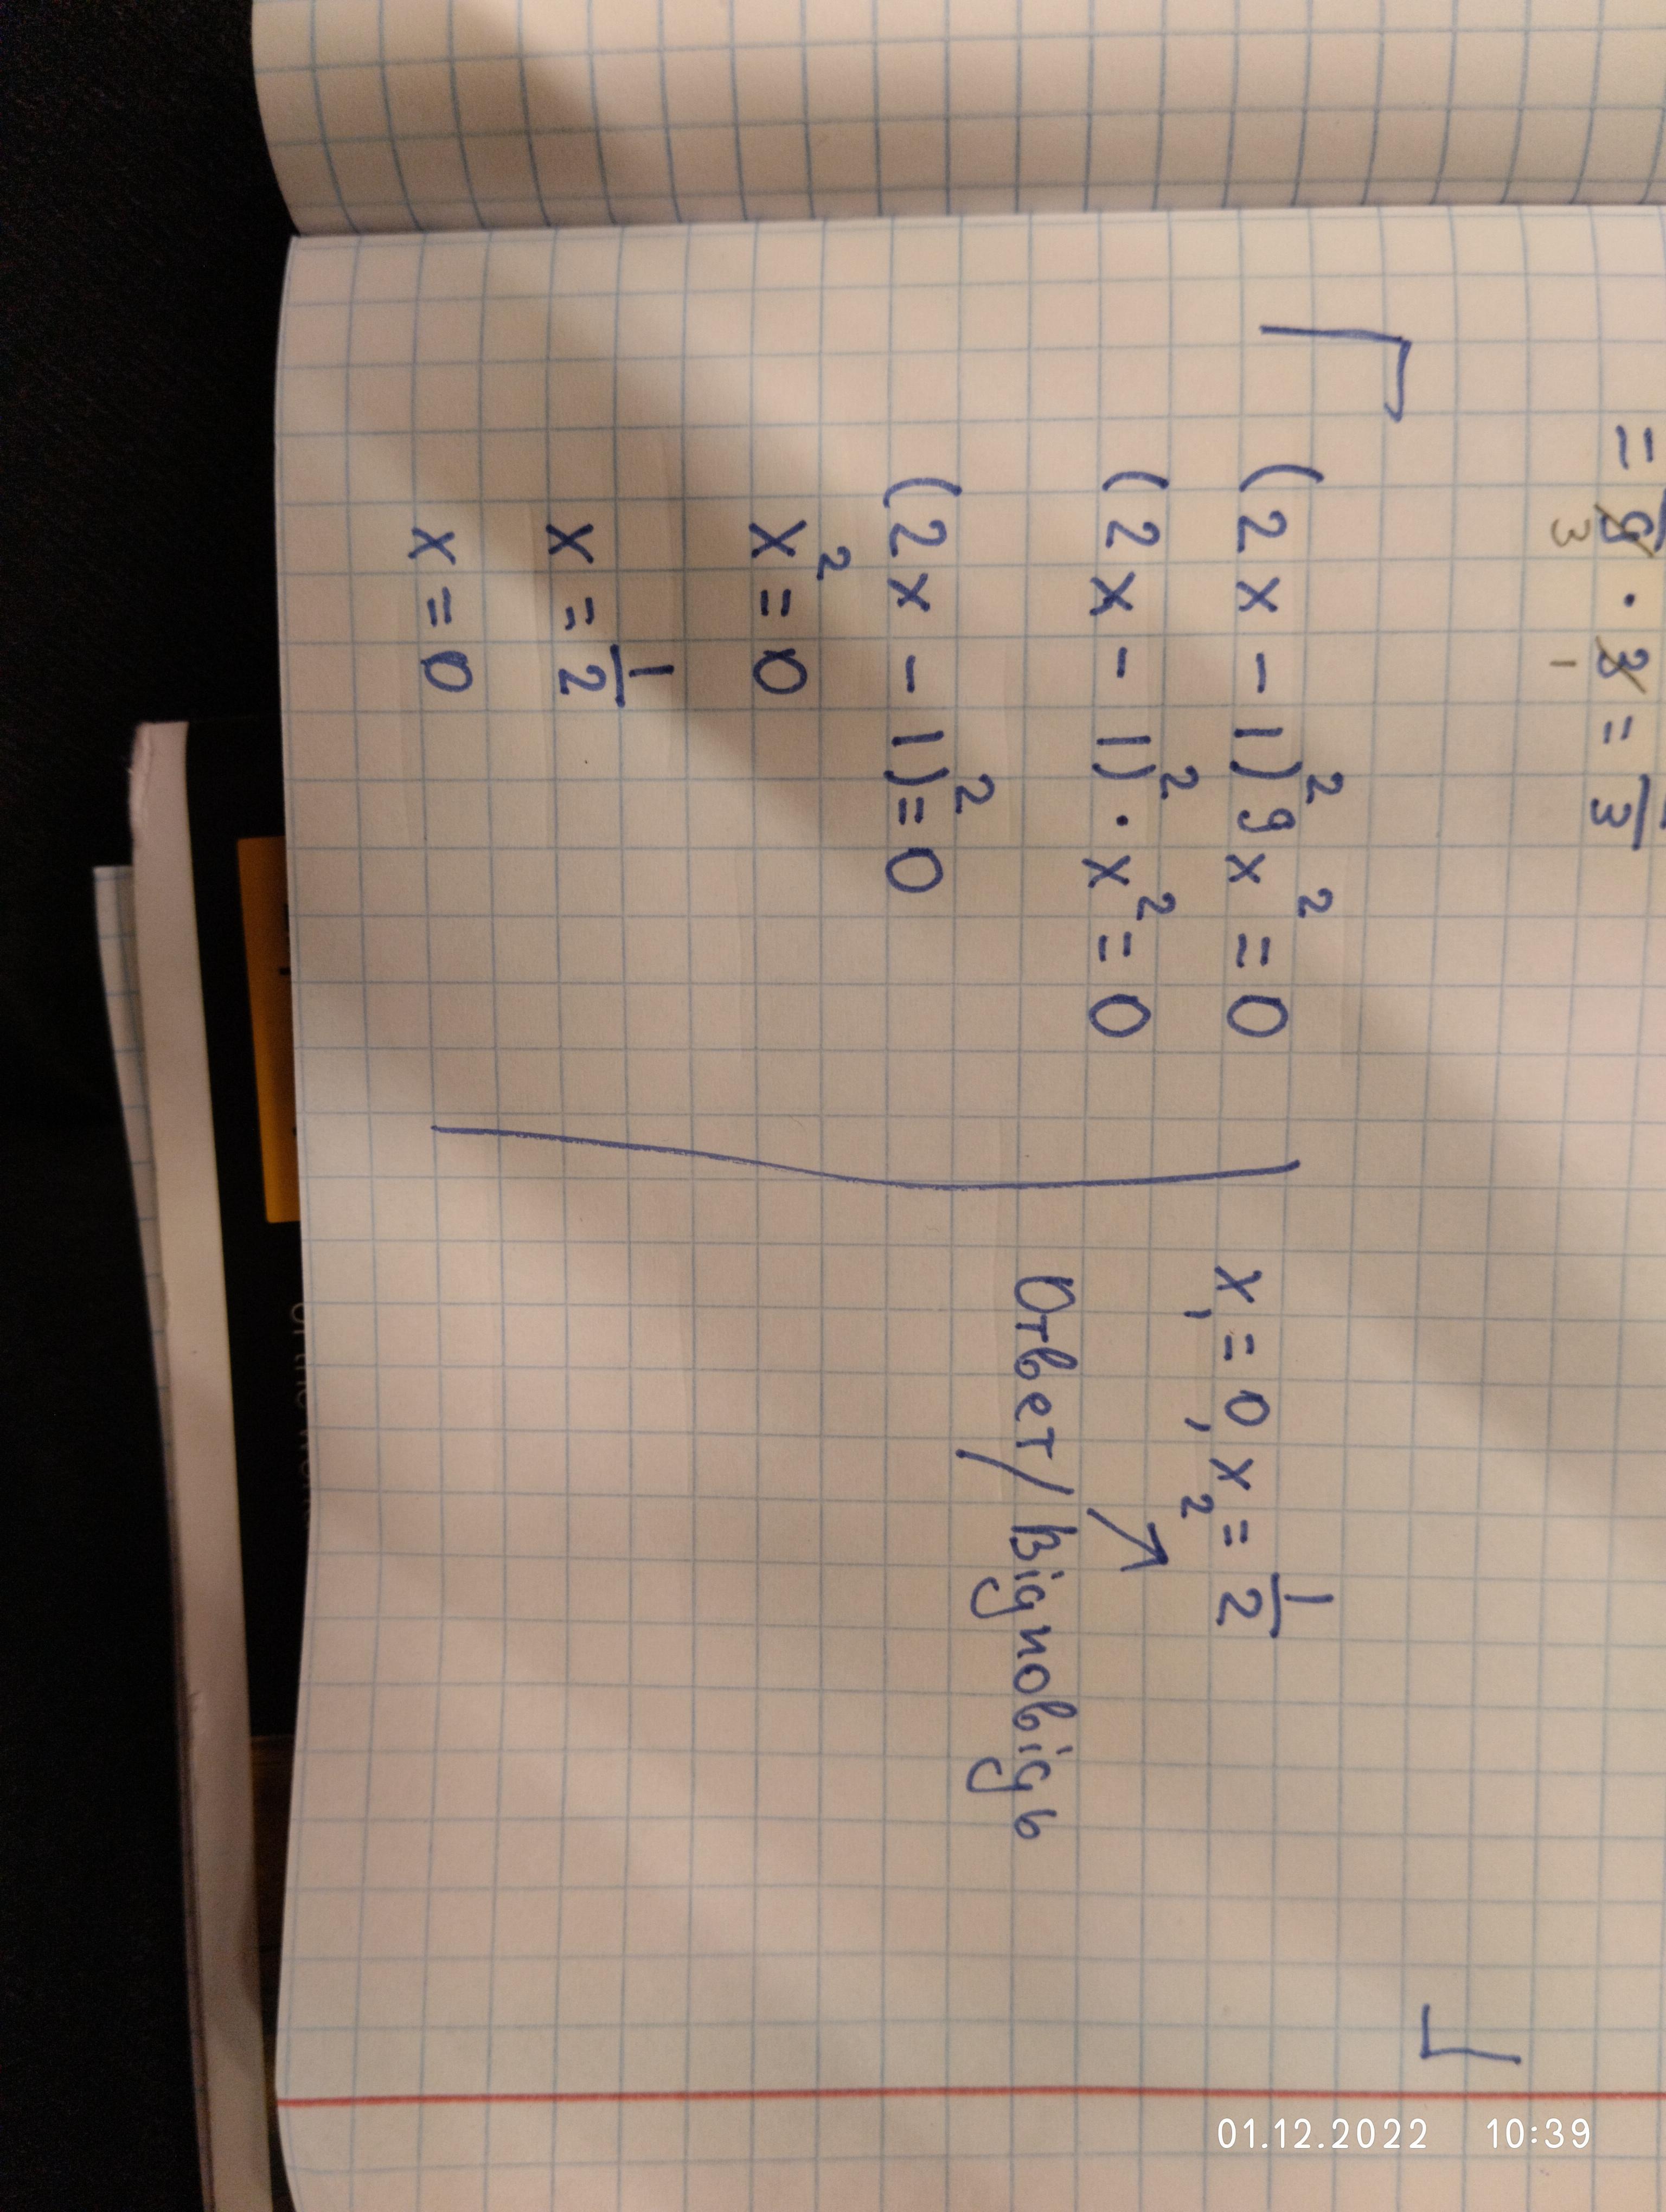 = 9 · 3 = 3
3 1
(2x - 1)²9x² = 0
(2x - 1)² · x² = 0
(2x - 1)² = 0
x² = 0
x = 1/2
x = 0
x₁ = 0, x₂ = 1/2
Ответ/Відповідь
01.12.2022 10:39